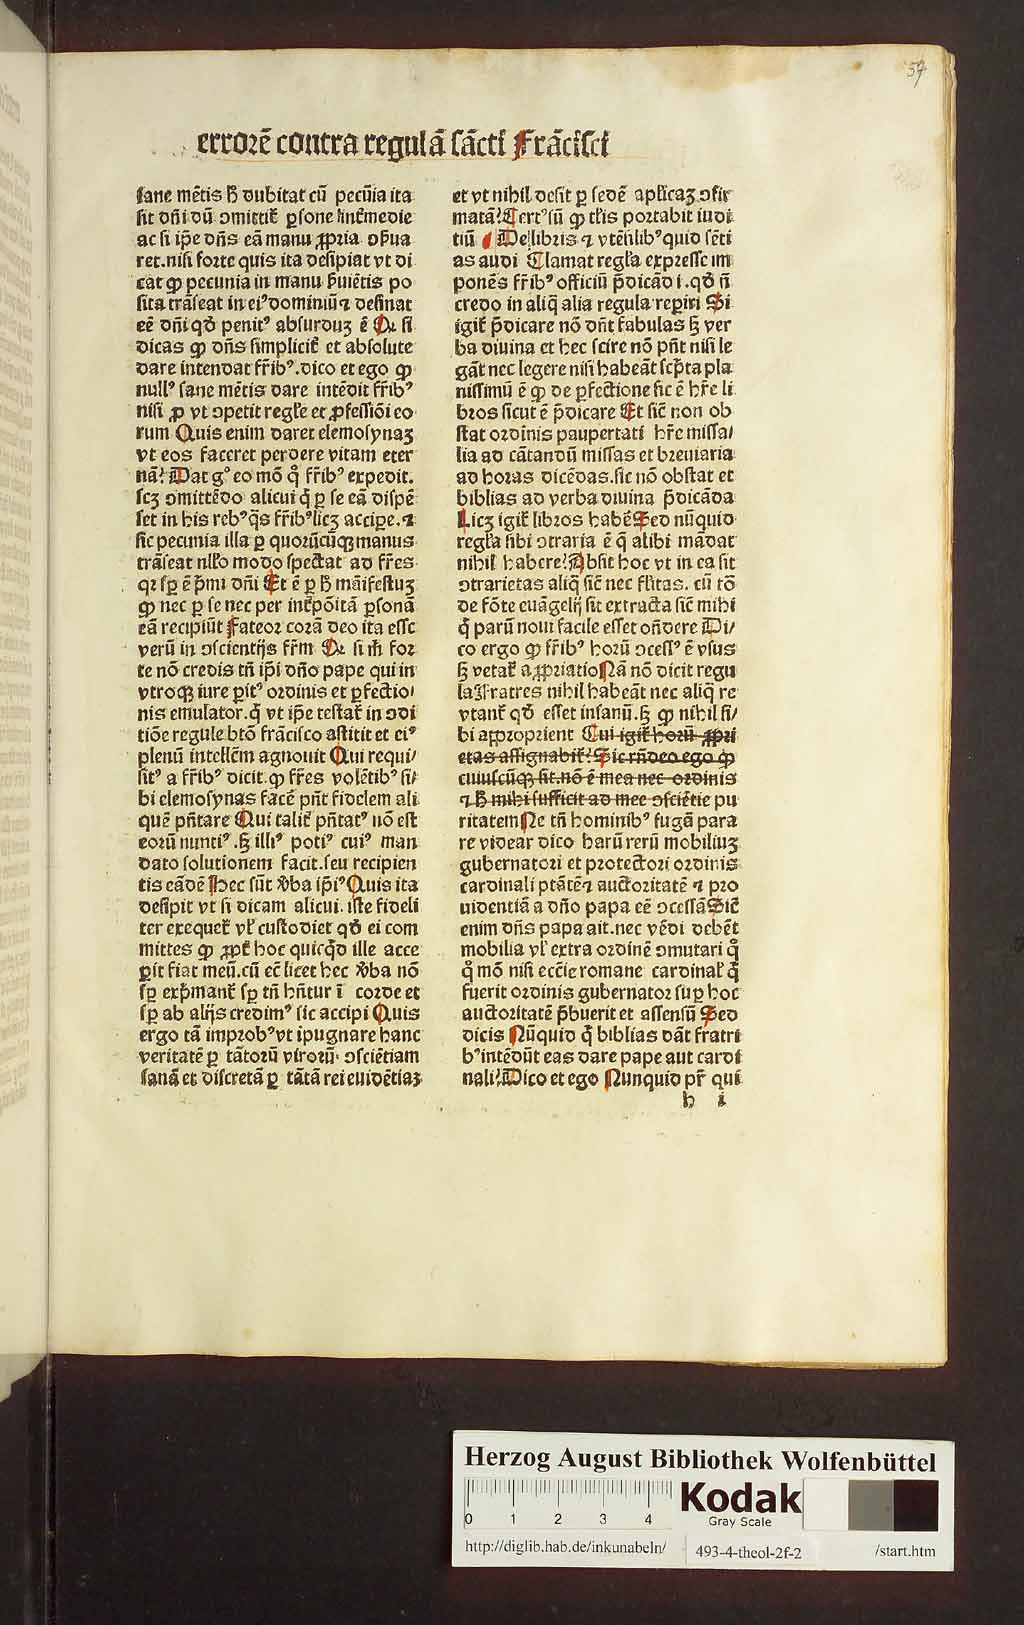 57
errorē contra regulā sācti Frācisci
sane mētis ħ dubitat cū pecūia ita
sit dn̄i dū ɔmittit᷑ ꝑsone int᷑medie
ac si ip̄e dn̄s eā manu ꝓpria ɔẜua
ret. nisi forte quis ita desipiat vt di
cat ꝙ pecunia in manu ẜuiētis po
sita trāseat in eiꝰ dominiū ⁊ desinat
eē dn̄i qd̄ penitꝰ absurduꝫ ē Qr si
dicas ꝙ dn̄s simplicit᷑ et absolute
dare intendat fr̄ibꝰ. dico et ego ꝙ
nullꝰ sane mētis dare intēdit fr̄ibꝰ
nisi ꝓ vt ɔpetit regl̄e et ꝓfessiōi eo
rum Quis enim daret elemosynaꝫ
vt eos faceret perdere vitam eter
nā? Dat gͦ eo mō q̄ fr̄ibꝰ expedit.
scꝫ ɔmittēdo alicui q̄ ꝑ se eā dispē
set in his rebꝰ q̄s fr̄ibꝰ licꝫ accipe. ⁊
sic pecunia illa ꝑ quorūcūqꝫ manus
trāseat nll̄o modo spectat ad fr̄es
qꝛ sꝑ ē p̄mi dn̄i Et ē ꝑ ħ māifestuꝫ
ꝙ nec ꝑ se nec per int᷑pōitā ꝑsonā
eā recipiūt Fateor corā deo ita esse
verū in ɔscientijs fr̄m Qr si m̄ for
te nō credis tn̄ ip̄i dn̄o pape qui in
vtroqꝫ iure ꝑitꝰ ordinis et ꝑfectio/
nis emulator. q̄ vt ip̄e testat᷑ in ɔdi
tiōe regule btō frācisco astitit et eiꝰ
plenū intellēm agnouit Qui requi/
sitꝰ a fr̄ibꝰ dicit. ꝙ fr̄es volētibꝰ si/
bi elemosynas facē pn̄t fidelem ali
quē pn̄tare Qui talit᷑ pn̄tatꝰ nō est
eorū nuntiꝰ. sꝫ illiꝰ potiꝰ cuiꝰ man
dato solutionem facit. seu recipien
tis eādē Hec sūt v̄ba ip̄iꝰ Quis ita
desipit vt si dicam alicui. iste fideli
ter exequet᷑ vl̓ custodiet qd̄ ei com
mittes ꝙ ꝓpt᷑ hoc quicq̄d ille acce
ꝑit fiat meū. cū eē licet hec v̄ba nō
sꝑ exp̄mant᷑ sꝑ tn̄ hn̄tur ī corde et
sꝑ ab alijs credimꝰ sic accipi Quis
ergo tā improbꝰ vt ipugnare hanc
veritatē ꝑ tātorū virorū ɔsciētiam
sanā et discretā ꝑ tātā rei euidētiaꝫ
et vt nihil desit ꝑ sedē apl̓icaꝫ ɔfir
matā? Certꝰ sū ꝙ tl̄is portabit iudi
tiū De libris ⁊ vtēsilibꝰ quid sēti
as audi Clamat regl̄a expresse im
ponēs fr̄ibꝰ officiū p̄dicādi. qd̄ n̄
credo in aliq̄ alia regula reperi Si
igit᷑ p̄dicare nō dn̄t fabulas sꝫ ver
ba diuina et hec scire nō pn̄t nisi le
gāt nec legere nisi habeāt scp̄ta pla
nissimū ē ꝙ de ꝑfectione sic ē hr̄e li
bros sicut ē p̄dicare Et sic̄ non ob
stat ordinis paupertati hr̄e missa/
lia ad cātandū missas et breuiaria
ad horas dicēdas. sic nō obstat et
biblias ad verba diuina p̄dicāda
Licꝫ igit᷑ libros habē Sed nūquid
regl̄a sibi ɔtraria ē q̄ alibi mādat
nihil habere? Absit hoc vt in ea sit
ɔtrarietas aliq̄ sic̄ nec fl̄itas. cū tō
de fōte euāgelij sit extracta sic̄ mihi
q̄ parū noui facile esset on̄dere Di/
co ergo ꝙ fr̄ibꝰ horū ɔcessꝰ ē vsus
sꝫ vetat᷑ aꝓpriatio Nā nō dicit regu
la Fratres nihil habeāt nec aliq̄ re
vtant᷑ qd̄ esset insanū. sꝫ ꝙ nihil si/
bi approprient Cui igit᷑ horū ꝓpri
etas assignabit᷑? Sic rn̄deo ego ꝙ
cuiuscūqꝫ sit. nō ē mea nec ordinis
⁊ ħ mihi sufficit ad mee ɔsciētie pu
ritatem Ne tn̄ hominibꝰ fugā para
re videar dico harū rerū mobiliuꝫ
gubernatori et protectori ordinis
cardinali ptātē ⁊ auctoritatē ⁊ pro
uidentiā a dn̄o papa eē ɔcessā Sic̄
enim dn̄s papa ait. nec vēdi debēt
mobilia vl̓ extra ordinē ɔmutari qͦ
qͦ mō nisi ecc̄ie romane cardinal̓ q̄
fuerit ordinis gubernator suꝑ hoc
auctoritatē p̄buerit et assensū Sed
dicis Nūquid q̄ biblias dāt fratri
bꝰ intēdūt eas dare pape aut cardi
nali? Dico et ego Nunquid pr̄ qui
h i
Herzog August Bibliothek Wolfenbüttel
0 1 2 3 4
Kodak
Gray Scale
http://diglib.hab.de/inkunabeln/ 493-4-theol-2f-2 /start.htm